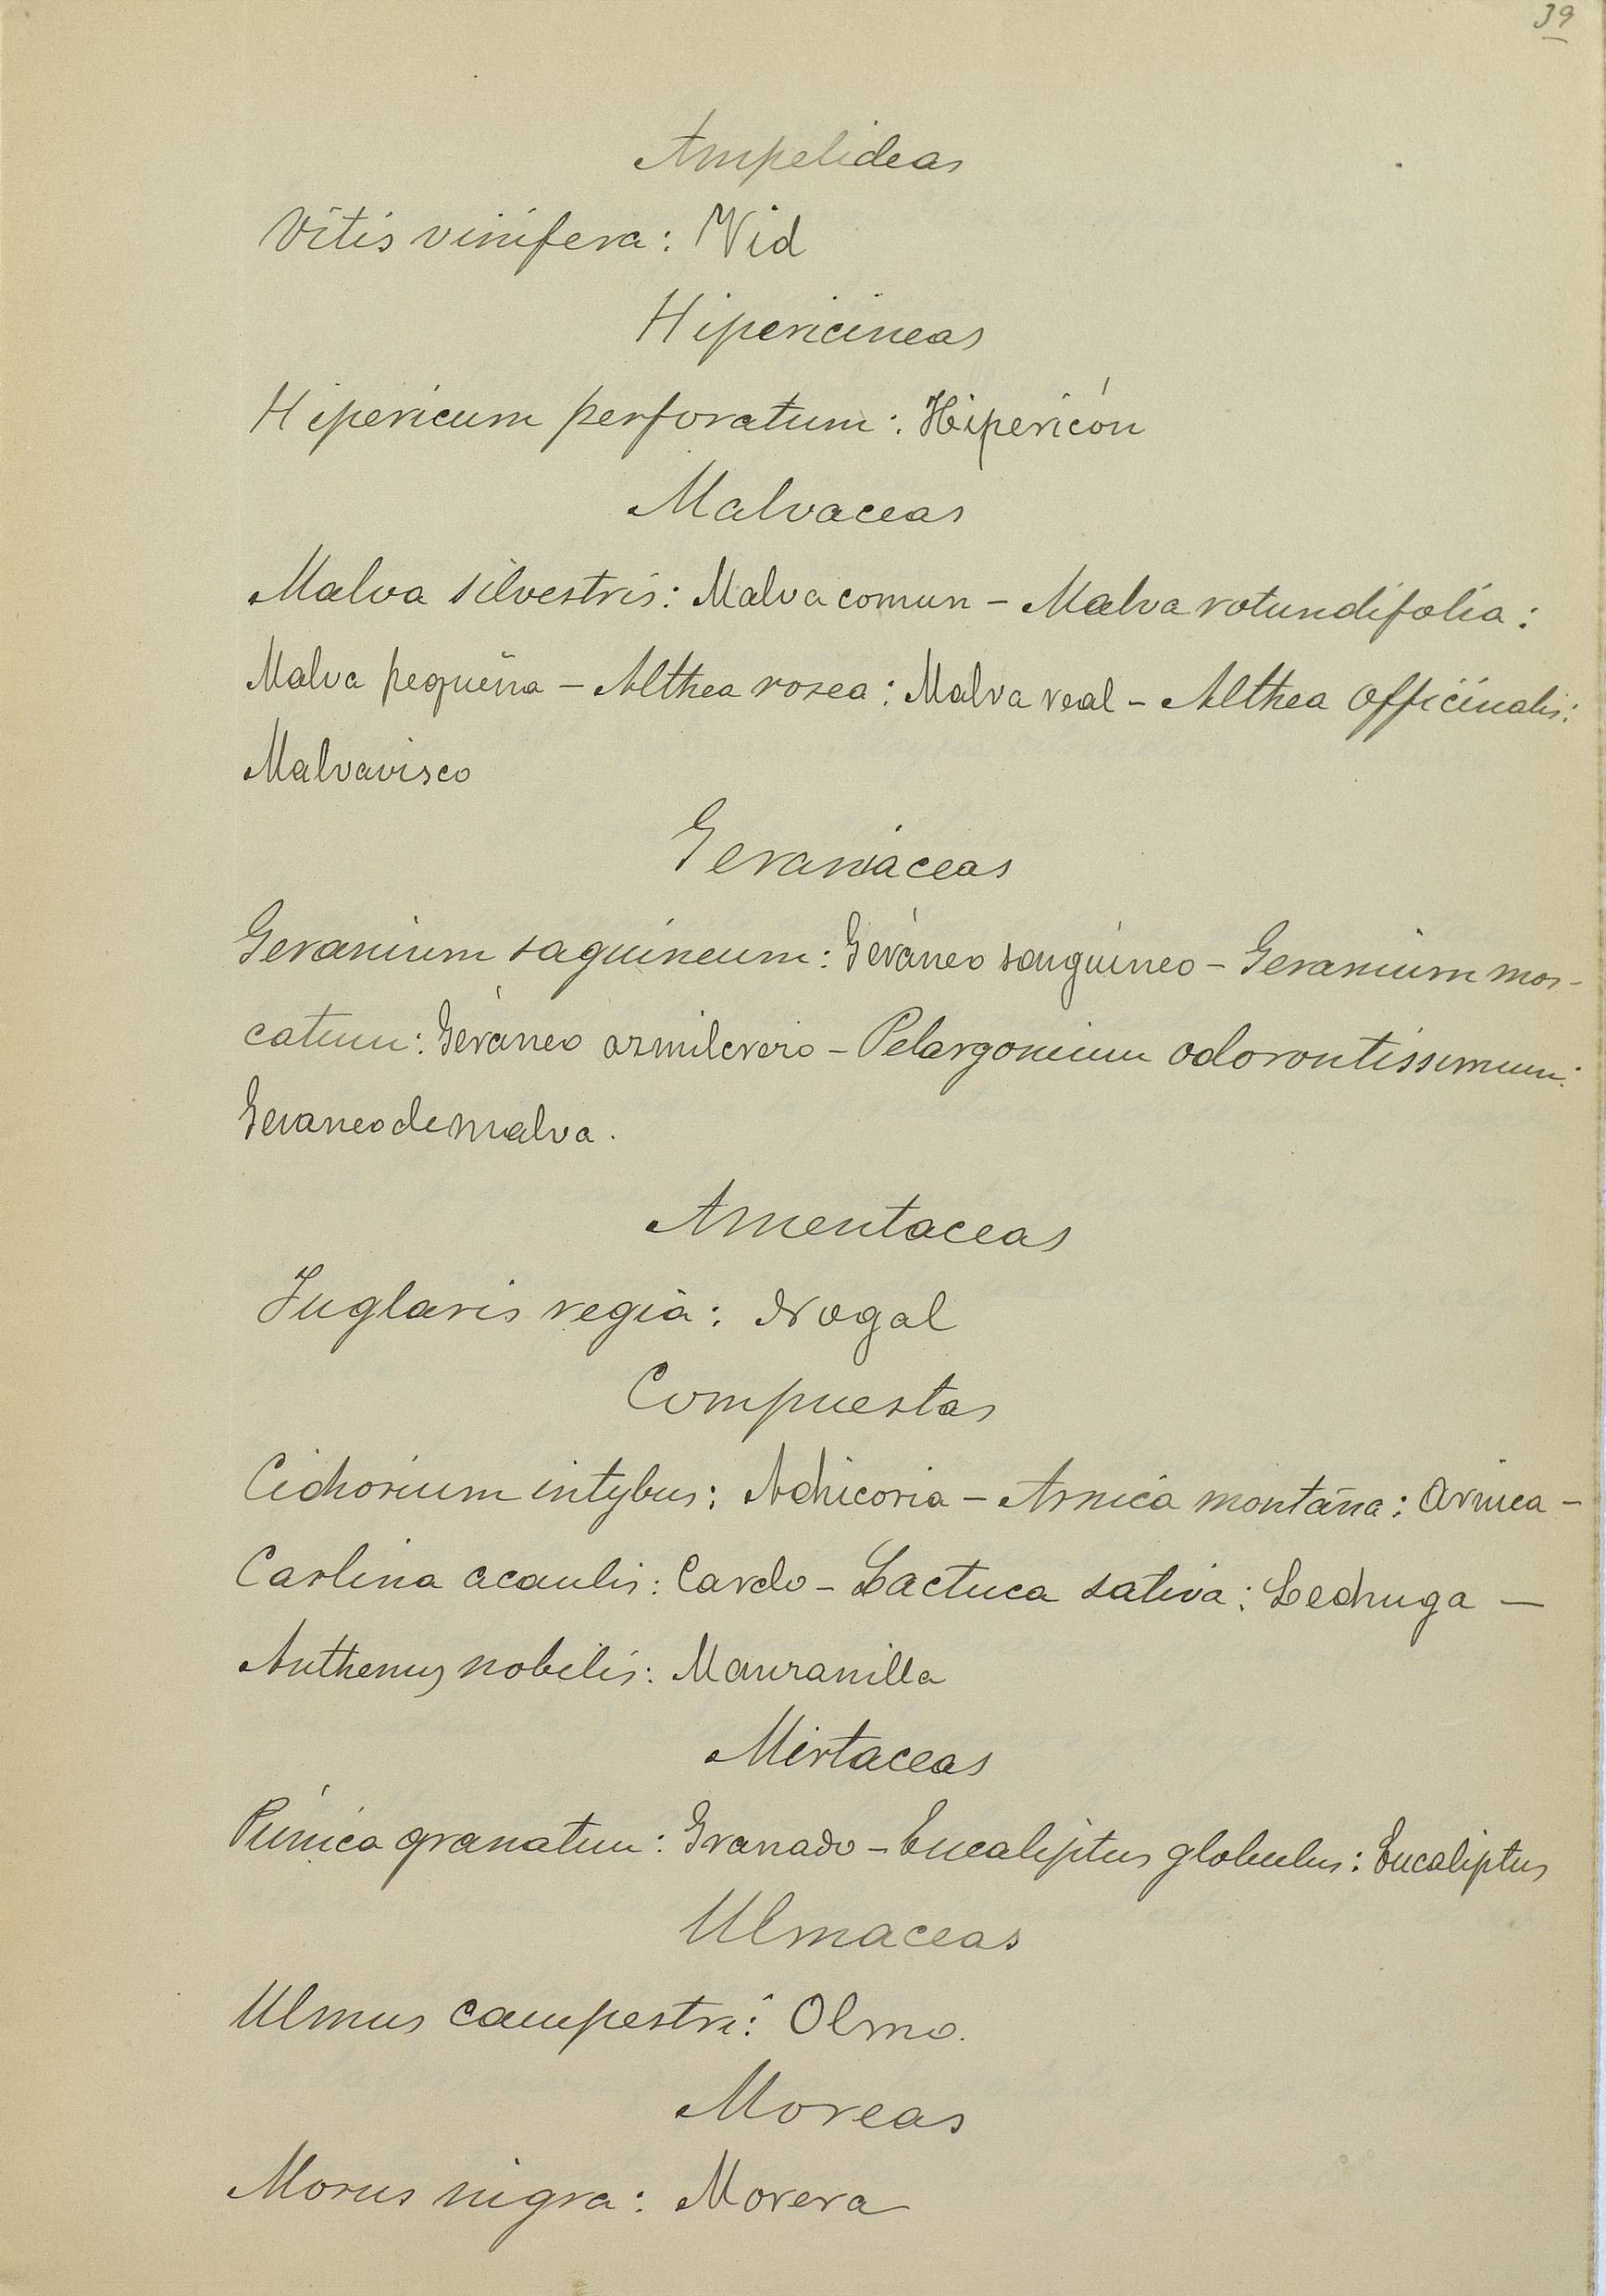 39
Ampelideas
Vitis vinifera: Vid
Hipericineas
Hipericum perforatum: Hipericón
Malvaceas
Malva silvestris: Malva comun - Malva rotundifolia:
Malva pequeña - Althea rosea: Malva real - Althea officinalis:
Malvavisco
Geraniaceas
Geranium saguineum: Geráneo sanguineo - Geranium mos-
catum: Geráneo - Pelargonium odorontissimum:
Geraneo de malva.
Amentaceas
Juglaris regia: Nogal
Compuestas
Cichorium intybus: Achicoria - Arnica montana: Arnica -
Carlina acaulis: Cardo - Lactuca sativa: Lechuga -
Anthemis nobilis: Manzanilla
Mirtaceas
Púnica granatum: Granado - Eucaliptus globulus: Eucaliptus
Ulmaceas
Ulmus campestri: Olmo.
Moreas
Morus nigra: Morera